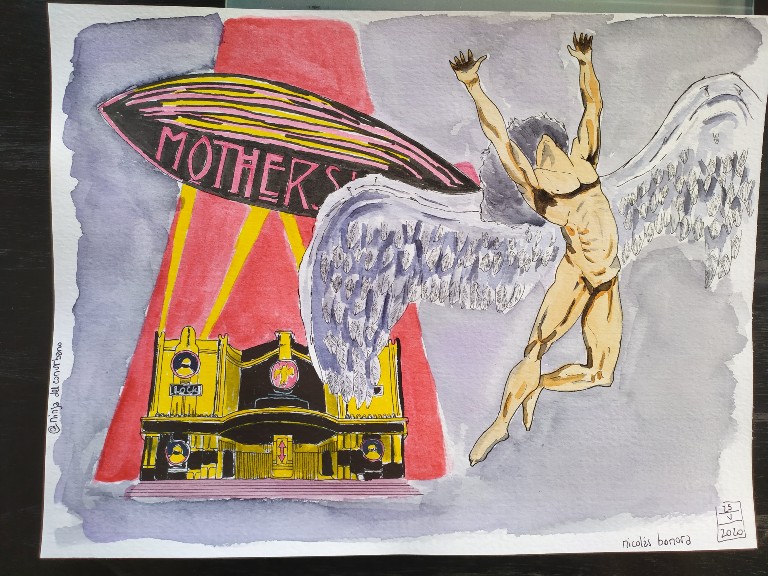 MOTHERS
ROCK
@ninja del conurbano
nicolás bonora
25
V
2020